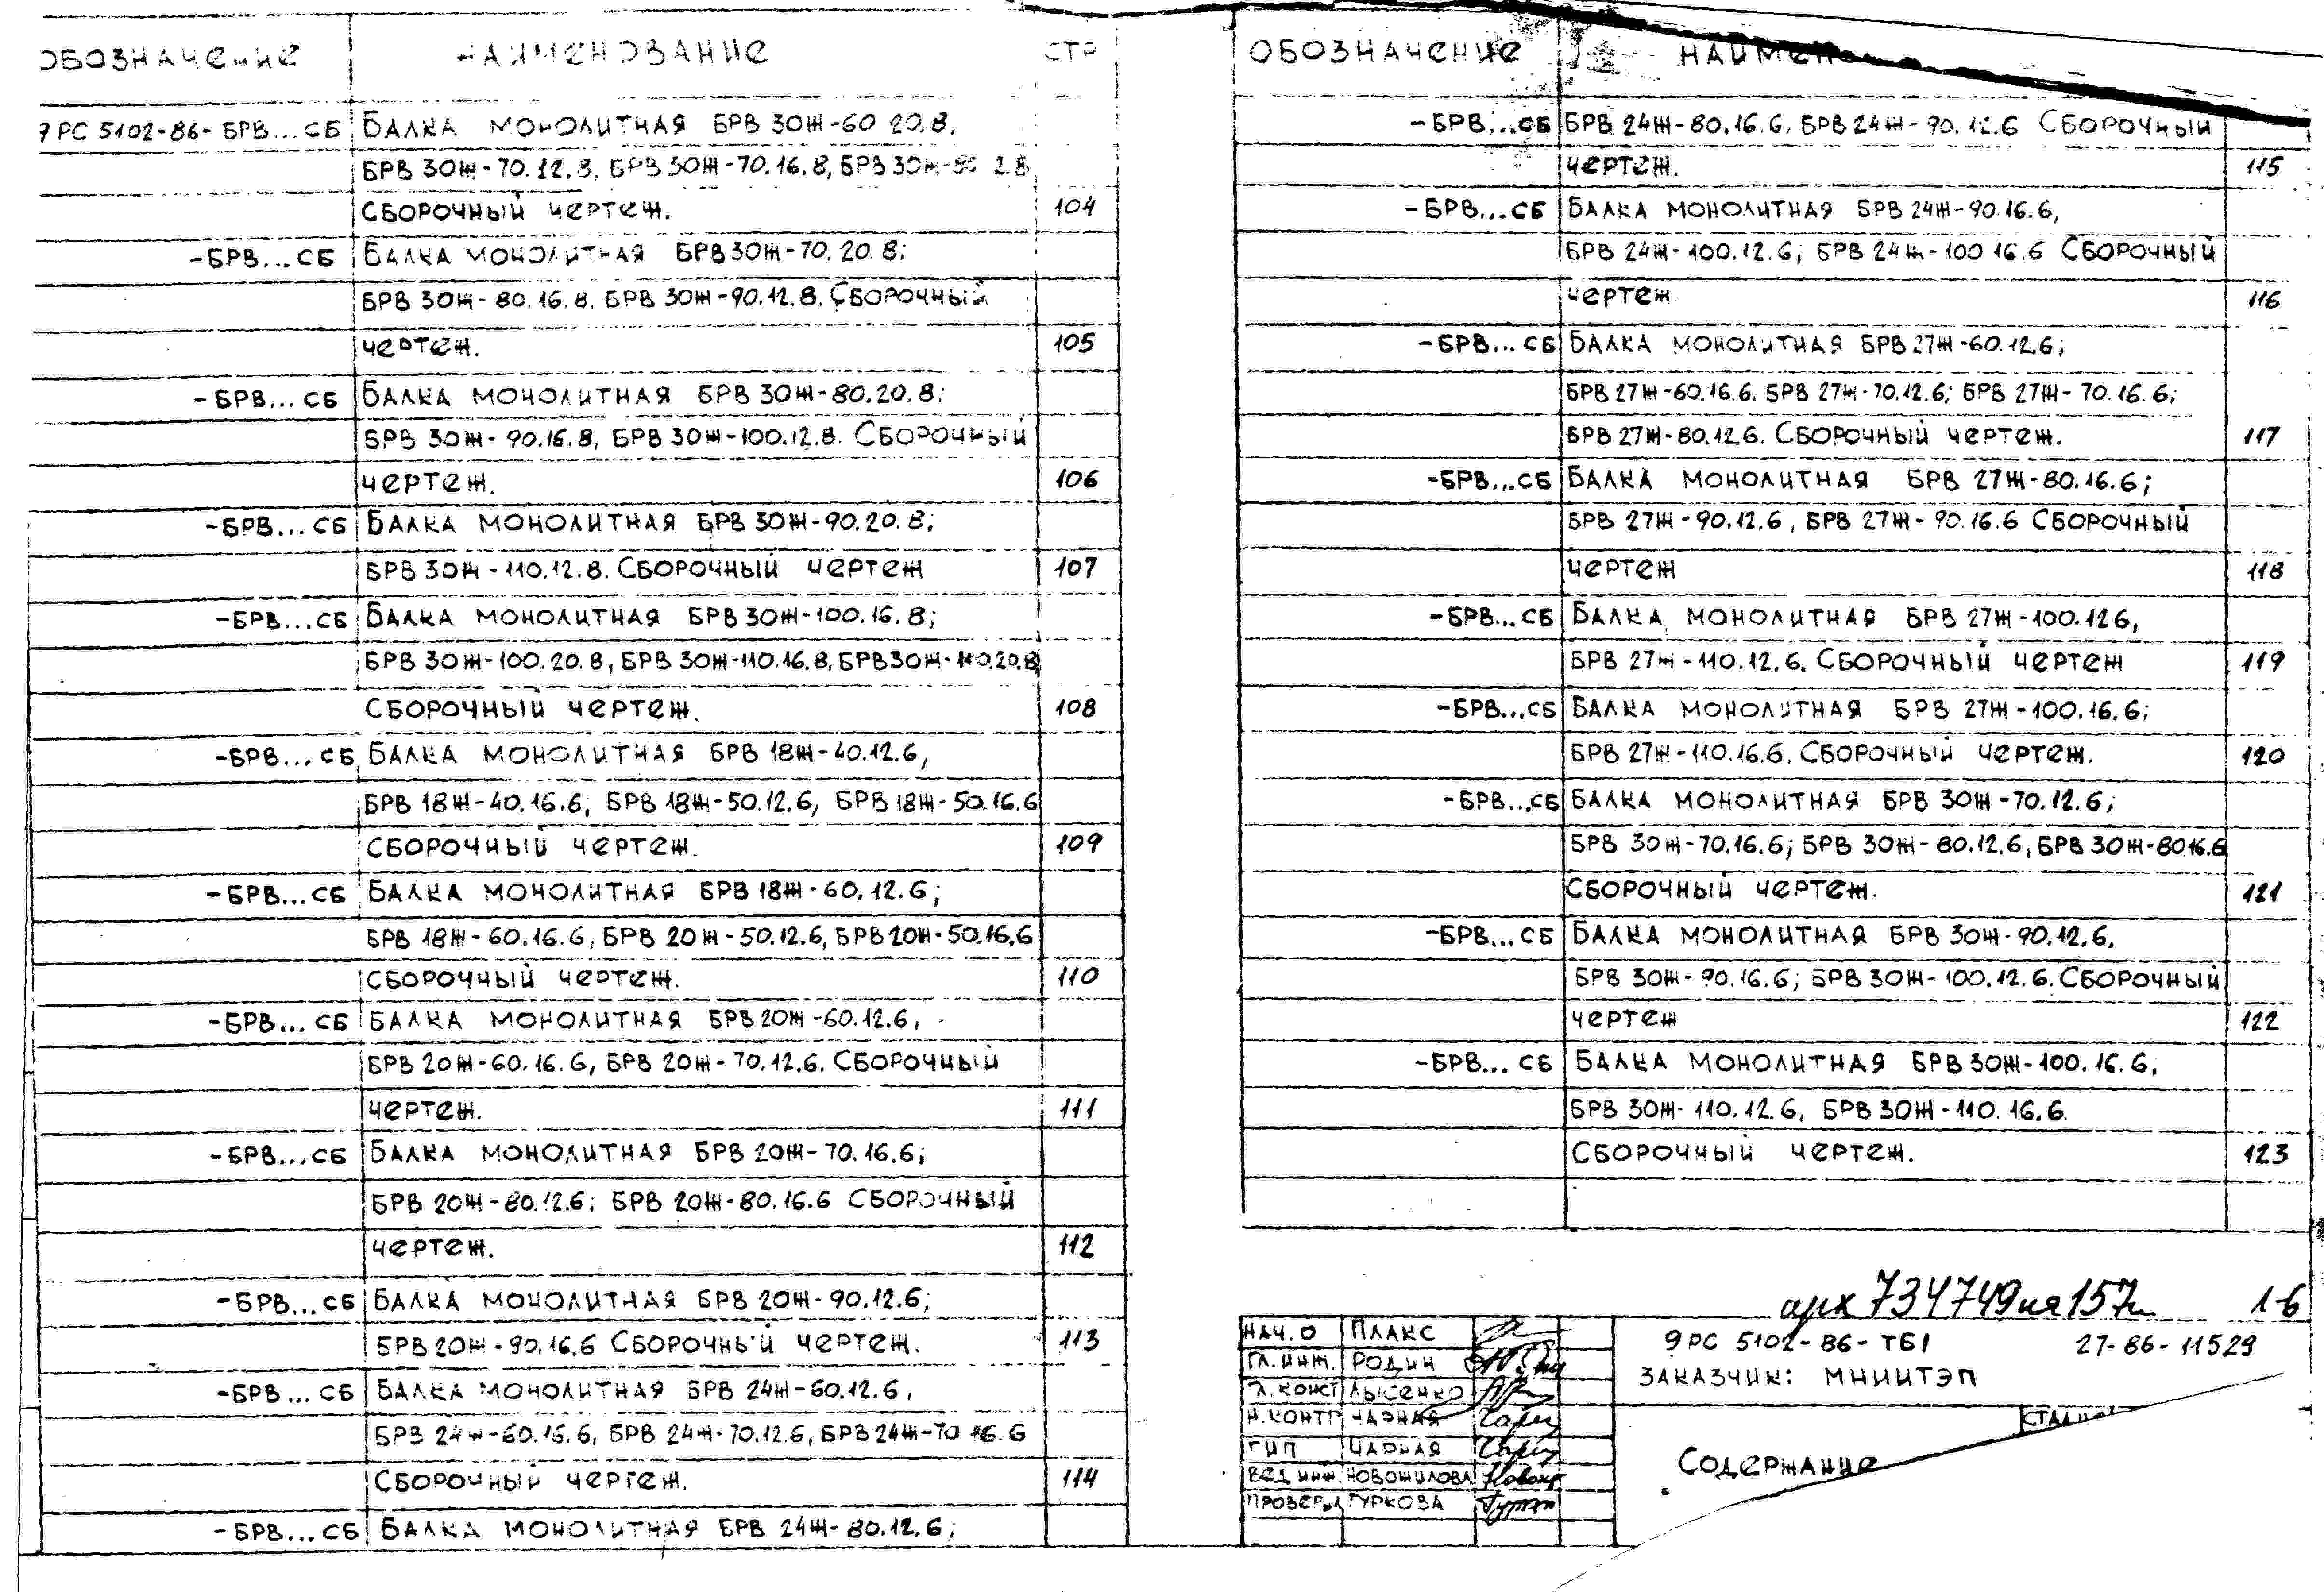 ОБОЗНАЧЕНИЕ НАИМЕНОВАНИЕ СТР
9 РС 5102-86- БРВ...СБ БАЛКА МОНОЛИТНАЯ БРВ 30Ж-60 20.8,
БРВ 30Ж-70.12.8, БРВ 30Ж-70.16.8, БРВ 30Ж-80 2.8
СБОРОЧНЫЙ ЧЕРТЕЖ. 104
-БРВ...СБ БАЛКА МОНОЛИТНАЯ БРВ 30Ж-70.20.8;
БРВ 30Ж-80.16.8. БРВ 30Ж-90.12.8. СБОРОЧНЫЙ
ЧЕРТЕЖ. 105
-БРВ...СБ БАЛКА МОНОЛИТНАЯ БРВ 30Ж-80.20.8;
БРВ 30Ж-90.16.8, БРВ 30Ж-100.12.8. СБОРОЧНЫЙ
ЧЕРТЕЖ. 106
-БРВ...СБ БАЛКА МОНОЛИТНАЯ БРВ 30Ж-90.20.8;
БРВ 30Ж-110.12.8. СБОРОЧНЫЙ ЧЕРТЕЖ 107
-БРВ...СБ БАЛКА МОНОЛИТНАЯ БРВ 30Ж-100.16.8;
БРВ 30Ж-100.20.8, БРВ 30Ж-110.16.8, БРВ 30Ж-110.20.8,
СБОРОЧНЫЙ ЧЕРТЕЖ. 108
-БРВ...СБ БАЛКА МОНОЛИТНАЯ БРВ 18Ж-40.12.6,
БРВ 18Ж-40.16.6; БРВ 18Ж-50.12.6, БРВ 18Ж-50.16.6
СБОРОЧНЫЙ ЧЕРТЕЖ. 109
-БРВ...СБ БАЛКА МОНОЛИТНАЯ БРВ 18Ж-60.12.6;
БРВ 18Ж-60.16.6, БРВ 20Ж-50.12.6, БРВ 20Ж-50.16.6
СБОРОЧНЫЙ ЧЕРТЕЖ. 110
-БРВ...СБ БАЛКА МОНОЛИТНАЯ БРВ 20Ж-60.12.6,
БРВ 20Ж-60.16.6, БРВ 20Ж-70.12.6. СБОРОЧНЫЙ
ЧЕРТЕЖ. 111
-БРВ...СБ БАЛКА МОНОЛИТНАЯ БРВ 20Ж-70.16.6;
БРВ 20Ж-80.12.6; БРВ 20Ж-80.16.6 СБОРОЧНЫЙ
ЧЕРТЕЖ. 112
-БРВ...СБ БАЛКА МОНОЛИТНАЯ БРВ 20Ж-90.12.6;
БРВ 20Ж-90.16.6 СБОРОЧНЫЙ ЧЕРТЕЖ. 113
-БРВ...СБ БАЛКА МОНОЛИТНАЯ БРВ 24Ж-60.12.6,
БРВ 24Ж-60.16.6, БРВ 24Ж-70.12.6, БРВ 24Ж-70 16.6
СБОРОЧНЫЙ ЧЕРТЕЖ. 114
-БРВ...СБ БАЛКА МОНОЛИТНАЯ БРВ 24Ж-80.12.6;
ОБОЗНАЧЕНИЕ НАИМЕНО
-БРВ...СБ БРВ 24Ж-80.16.6, БРВ 24Ж-90.12.6 СБОРОЧНЫЙ
ЧЕРТЕЖ. 115
-БРВ...СБ БАЛКА МОНОЛИТНАЯ БРВ 24Ж-90.16.6,
БРВ 24Ж-100.12.6; БРВ 24Ж-100 16.6 СБОРОЧНЫЙ
ЧЕРТЕЖ 116
-БРВ...СБ БАЛКА МОНОЛИТНАЯ БРВ 27Ж-60.12.6;
БРВ 27Ж-60.16.6. БРВ 27Ж-70.12.6; БРВ 27Ж-70.16.6;
БРВ 27Ж-80.12.6. СБОРОЧНЫЙ ЧЕРТЕЖ. 117
-БРВ...СБ БАЛКА МОНОЛИТНАЯ БРВ 27Ж-80.16.6;
БРВ 27Ж-90.12.6, БРВ 27Ж-90.16.6 СБОРОЧНЫЙ
ЧЕРТЕЖ 118
-БРВ...СБ БАЛКА МОНОЛИТНАЯ БРВ 27Ж-100.126,
БРВ 27Ж-110.12.6. СБОРОЧНЫЙ ЧЕРТЕЖ 119
-БРВ...СБ БАЛКА МОНОЛИТНАЯ БРВ 27Ж-100.16.6;
БРВ 27Ж-110.16.6. СБОРОЧНЫЙ ЧЕРТЕЖ. 120
-БРВ...СБ БАЛКА МОНОЛИТНАЯ БРВ 30Ж-70.12.6;
БРВ 30Ж-70.16.6; БРВ 30Ж-80.12.6, БРВ 30Ж-80.16.6
СБОРОЧНЫЙ ЧЕРТЕЖ. 121
-БРВ...СБ БАЛКА МОНОЛИТНАЯ БРВ 30Ж-90.12.6,
БРВ 30Ж-90.16.6; БРВ 30Ж-100.12.6. СБОРОЧНЫЙ
ЧЕРТЕЖ 122
-БРВ...СБ БАЛКА МОНОЛИТНАЯ БРВ 30Ж-100.16.6;
БРВ 30Ж-110.12.6, БРВ 30Ж-110.16.6.
СБОРОЧНЫЙ ЧЕРТЕЖ. 123
арх 734749 157 16
НАЧ. О ПЛАКС
ГЛ. ИНЖ. РОДИН
Л. КОНСТ ЛЫСЕНКО
Н. КОНТР ЧАРНАЯ
ГИП ЧАРНАЯ
ВЕД ИНЖ. НОВОЖИЛОВА
ПРОВЕРИЛ ГУРКОВА
9 РС 5102-86-ТБ1 27-86-11529
ЗАКАЗЧИК: МНИИТЭП
СОДЕРЖАНИЕ